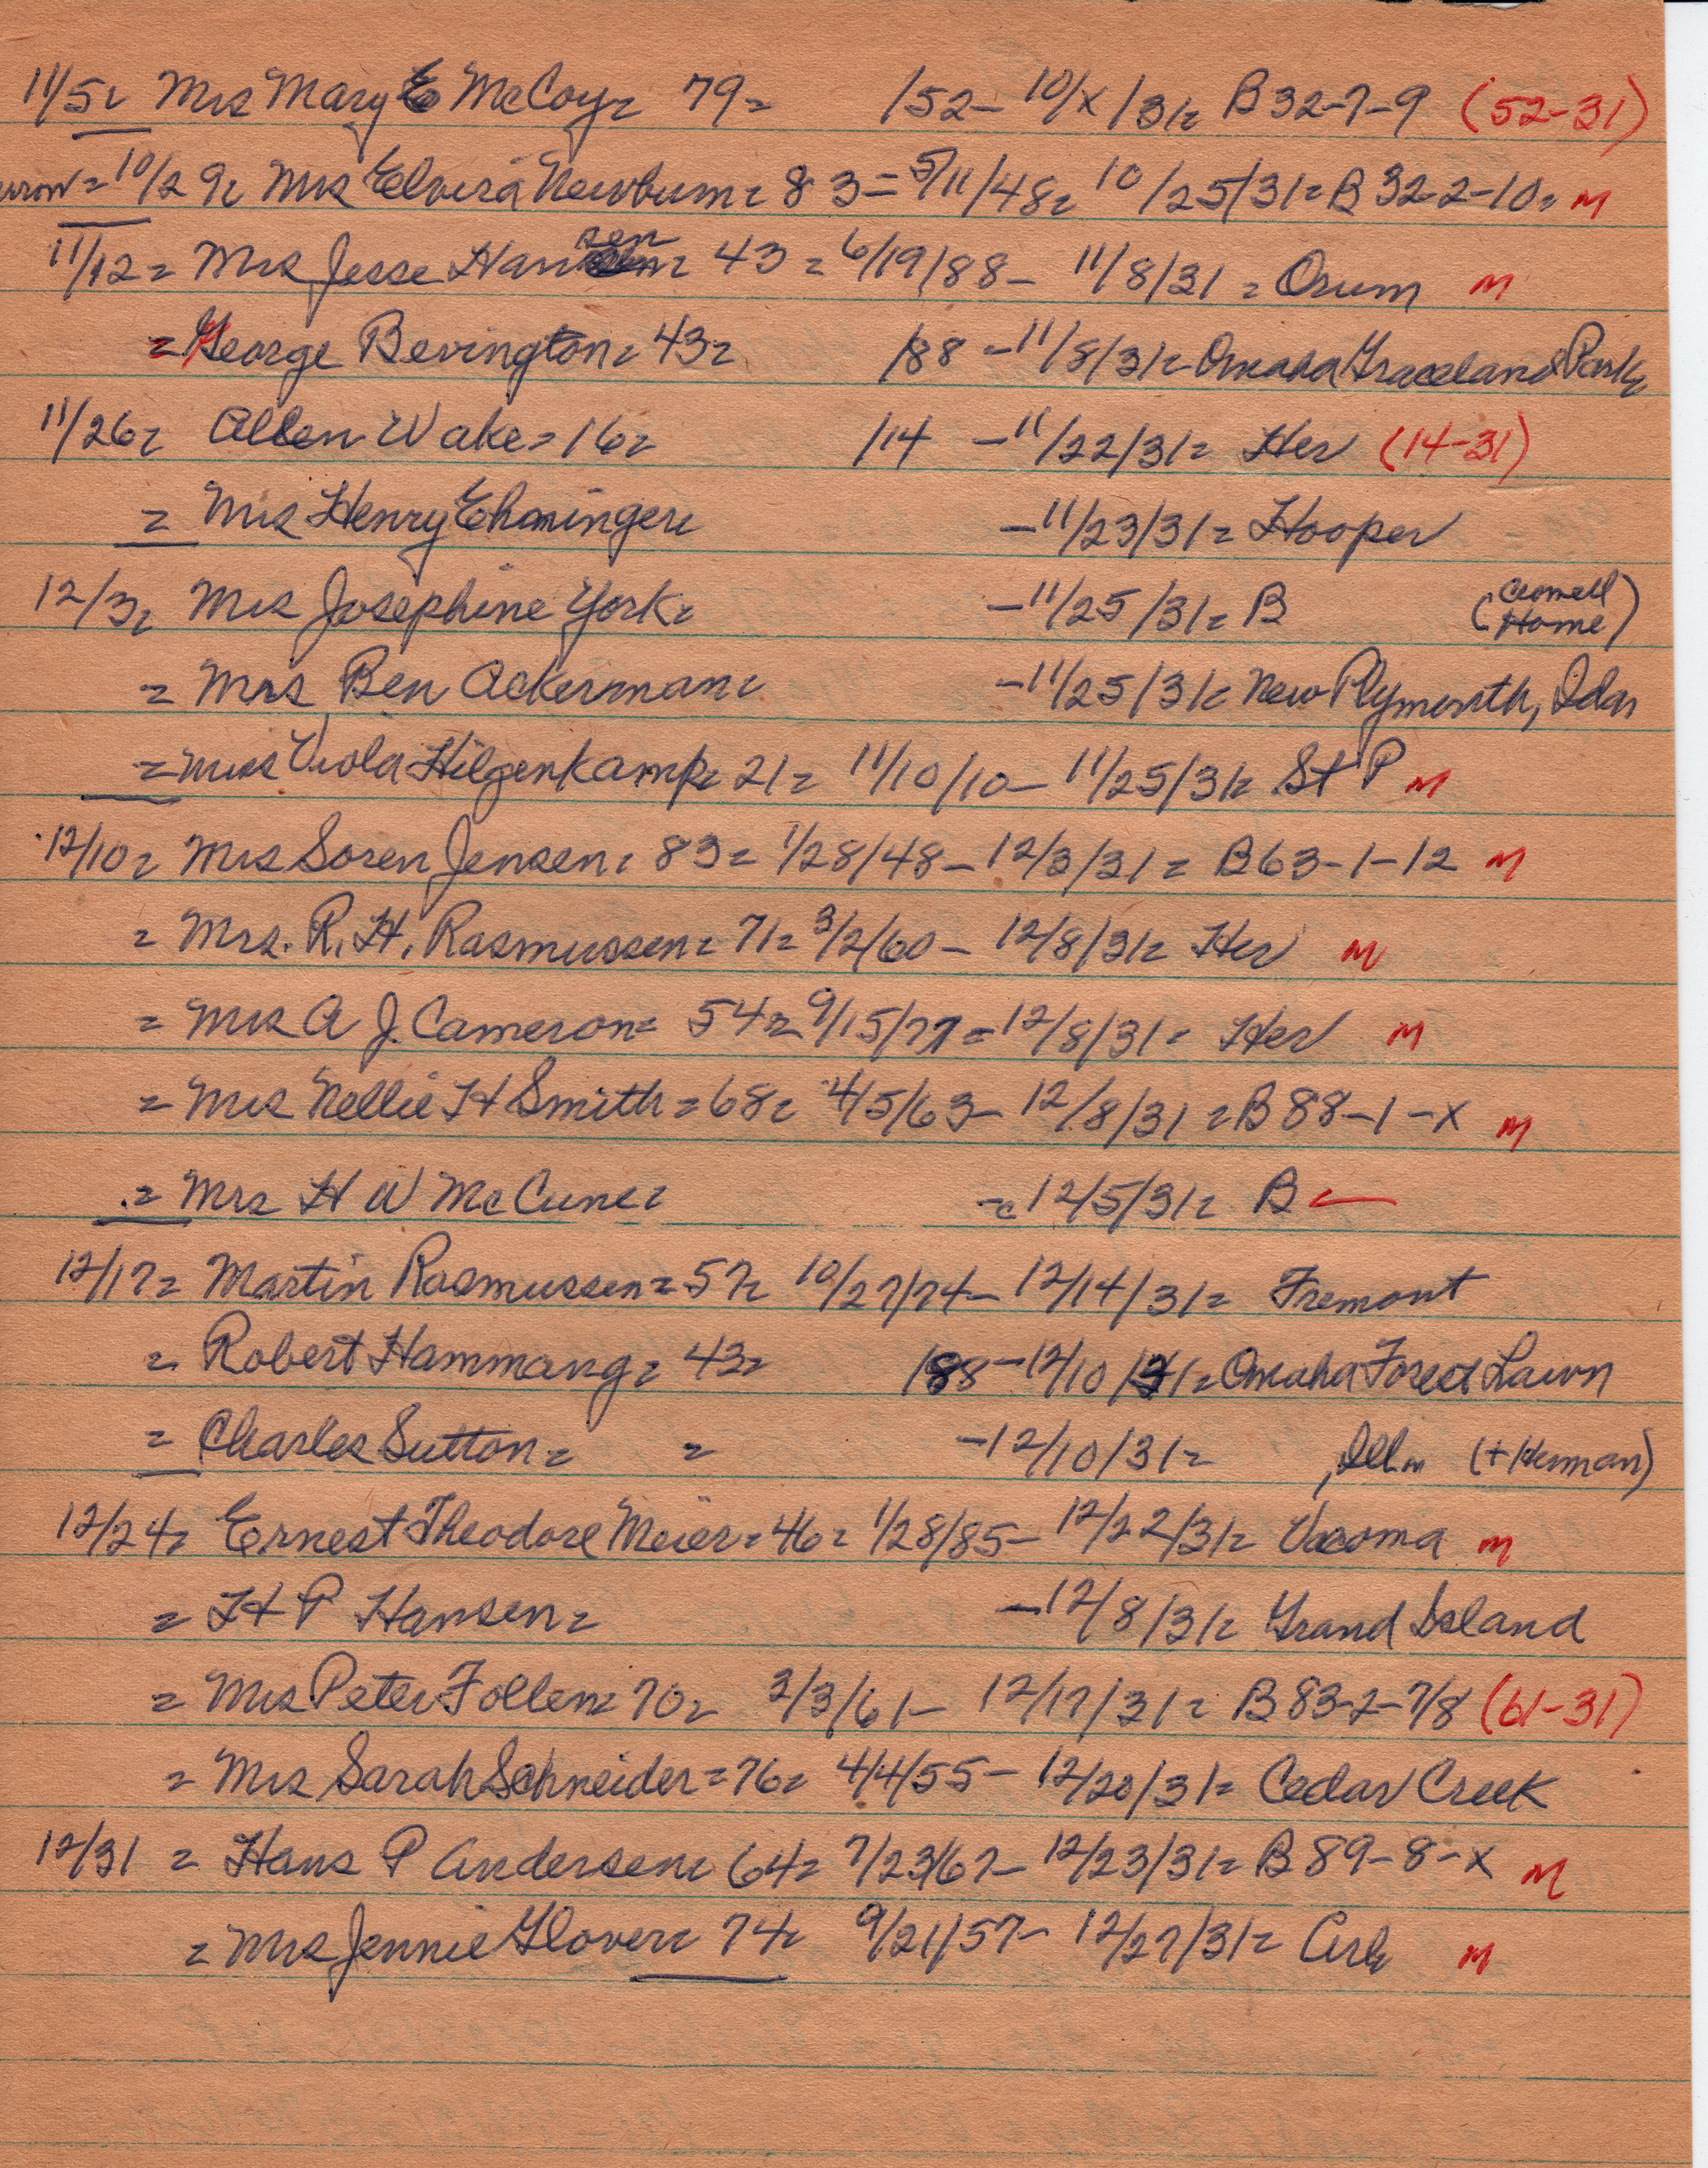 11/5= Mrs Mary E McCoy= 79= /52- 10/x/31= B 32-7-9 (52-31)
= 10/29= Mrs Elvira Newbum= 83= 5/11/48= 10/25/31= B 32-2-10= M
11/12= Mrs Jesse Hansen= 43= 6/19/88- 11/8/31= Orum M
= George Bevington= 43= /88 -11/8/31= Omaha Graceland Park
11/26= Allen Wake= 16= /14 -11/22/31= Her (14-31)
= Mrs Henry Ehminger= -11/23/31= Hooper
12/3= Mrs Josephine York= -11/25/31= B (Crowell Home)
= Mrs Ben Ackerman= -11/25/31= New Plymouth, Ida
= Miss Viola Hilgenkamp= 21= 11/10/10- 11/25/31= St P M
12/10= Mrs Soren Jensen= 83= 1/28/48- 12/3/31= B 63-1-12 M
= Mrs. R. H. Rasmussen= 71= 3/2/60- 12/8/31= Her M
= Mrs A J. Cameron= 54= 9/15/77= 12/8/31= Her M
= Mrs Nellie H Smith= 68= 4/5/63- 12/8/31= B 88-1-x M
= Mrs H W McCune= - 12/5/31= B
12/17= Martin Rasmussen= 57= 10/27/74- 12/14/31= Fremont
= Robert Hammang= 43= /88- 12/10/31= Omaha Forest Lawn
= Charles Sutton= = -12/10/31= , Ill= (+ Herman)
12/24= Ernest Theodore Meier= 46= 1/28/85- 12/22/31= Vacoma M
= H P Hansen= -12/8/31= Grand Island
= Mrs Peter Follen= 70= 2/3/61- 12/17/31= B 83-2-7/8 (61-31)
= Mrs Sarah Schneider= 76= 4/4/55- 12/20/31= Cedar Creek
12/31 = Hans P Andersen= 64= 7/23/67- 12/23/31= B 89-8-x M
= Mrs Jennie Glover= 74= 9/21/57- 12/27/31= Arl= M